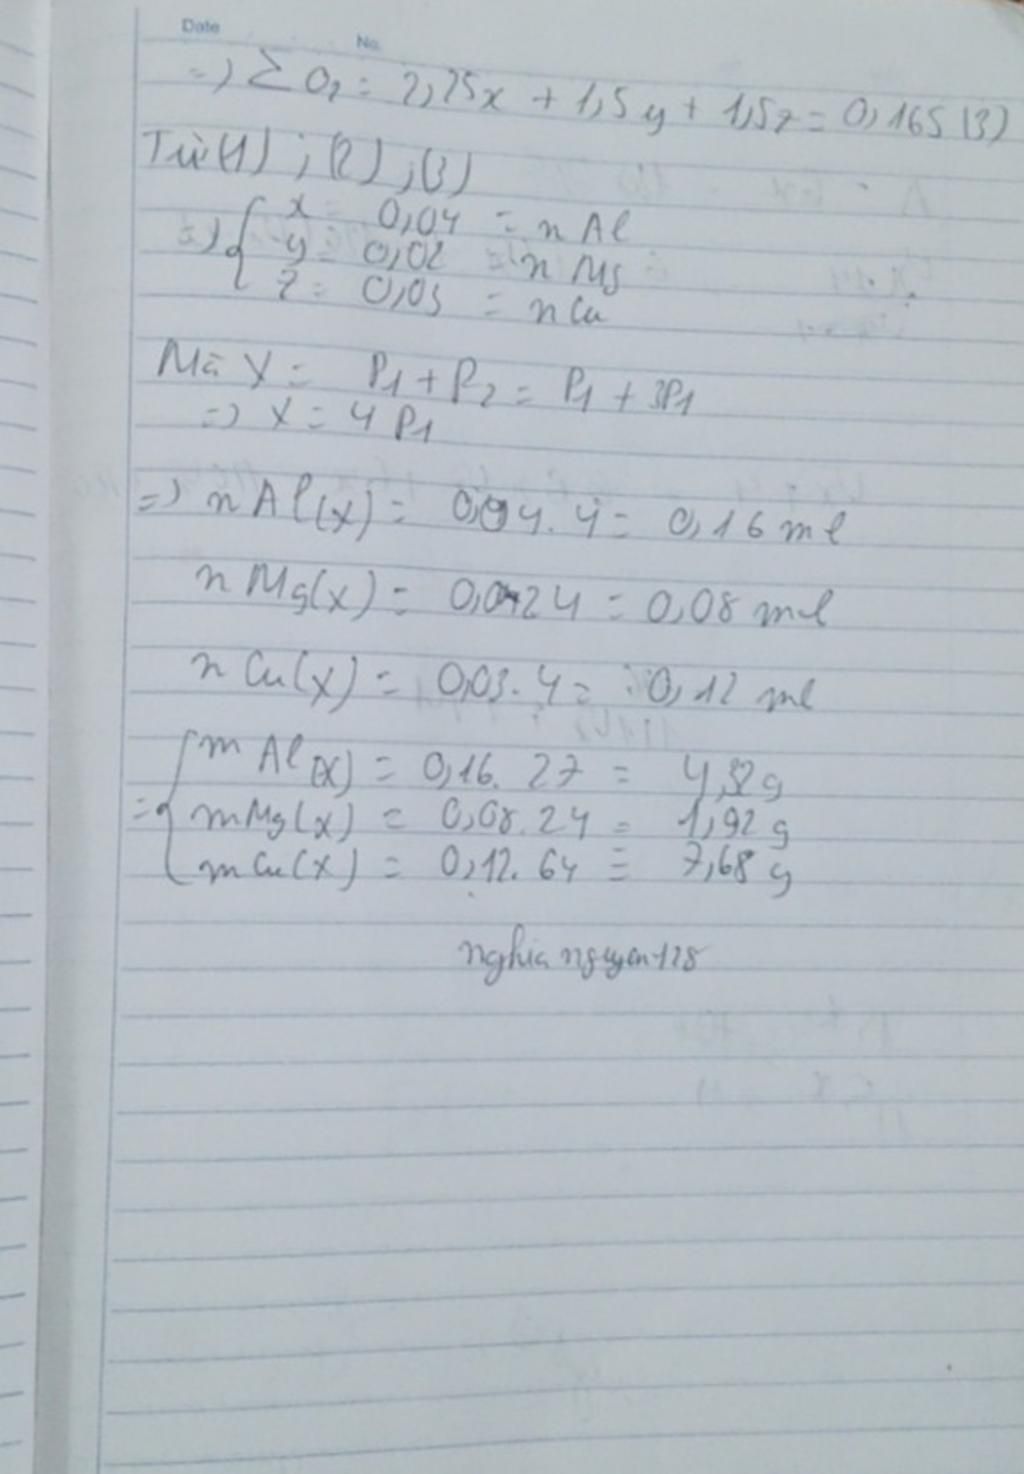 Date No.
=) Σ O2 = 2,25x + 1,5y + 1,5z = 0,165 (3)
Từ (1) ; (2) ; (3)
=) { x = 0,04 = n Al
y = 0,02 = n Mg
z = 0,03 = n Cu
Mà Y = P1 + P2 = P1 + 3P1
=) X = 4 P1
=) n Al(X) = 0,04.4 = 0,16 ml
n Mg(X) = 0,024 = 0,08 ml
n Cu(X) = 0,03.4 = 0,12 ml
=) { m Al(X) = 0,16. 27 = 4,32g
m Mg(X) = 0,08.24 = 1,92 g
m Cu(X) = 0,12. 64 = 7,68 g
nghia nguyen128